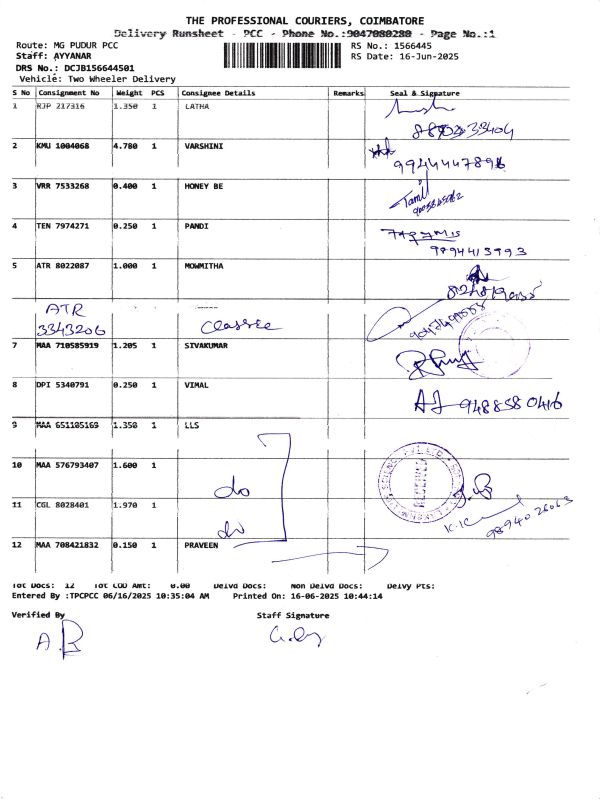 THE PROFESSIONAL COURIERS, COIMBATORE
Delivery Runsheet - PCC - Phone No.:9047080280 - Page No.:1
Route: MG PUDUR PCC
RS No.: 1566445
Staff: AYYANAR
RS Date: 16-Jun-2025
DRS No.: DCJB156644501
Vehicle: Two Wheeler Delivery
S No Consignment No Weight PCS Consignee Details Remarks Seal & Signature
1 RJP 217316 1.350 1 LATHA
2 KMU 1004068 4.780 1 VARSHINI
9944447896
3 VRR 7533268 0.400 1 HONEY BE
Tamil
4 TEN 7974271 0.250 1 PANDI
9894413993
5 ATR 8022087 1.000 1 MOWMITHA
ATR
3343206 Classic
7 MAA 710585919 1.205 1 SIVAKUMAR
8 DPI 5340791 0.250 1 VIMAL
9488580416
9 MAA 651105169 1.350 1 LLS
10 MAA 576793407 1.600 1 do
RECEIVED
11 CGL 8028401 1.970 1 do
9894026063
12 MAA 708421832 0.150 1 PRAVEEN
Tot Docs: 12 Tot COD Amt: 0.00 Delvd Docs: Non Delvd Docs: Delvy Pts:
Entered By :TPCPCC 06/16/2025 10:35:04 AM Printed On: 16-06-2025 10:44:14
Verified By Staff Signature